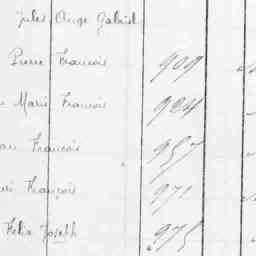 Jules Ange Gabriel
Pierre François 909
Marie François 924
François 957
François 971
Felix Joseph 975